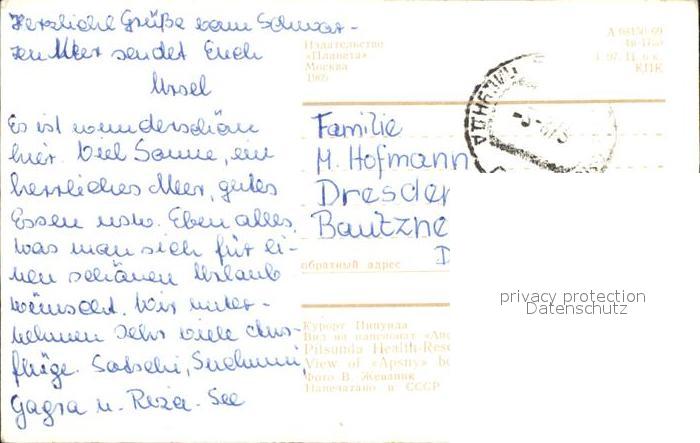 Herzliche Grüße vom Schwar-
zen Meer sendet Euch
Ursel
Es ist wunderschön
hier. Viel Sonne, ein
herrliches Meer, gutes
Essen usw. Eben alles,
was man sich für ei-
nen schönen Urlaub
wünscht. Wir unter-
nehmen sehr viele Aus-
flüge. Sotschi, Suchumi,
Gagra u. Riza-See
Издательство
«Планета»
Москва
1969
КПК
Familie
M. Hofmann
Dresden
Bautzne
D
обратный адрес
privacy protection
Datenschutz
Курорт Пицунда
Вид на пансионат «Апс
Pitsunda Health-Reso
View of «Apsny» bo
Фото В. Жевания
Напечатано в СССР